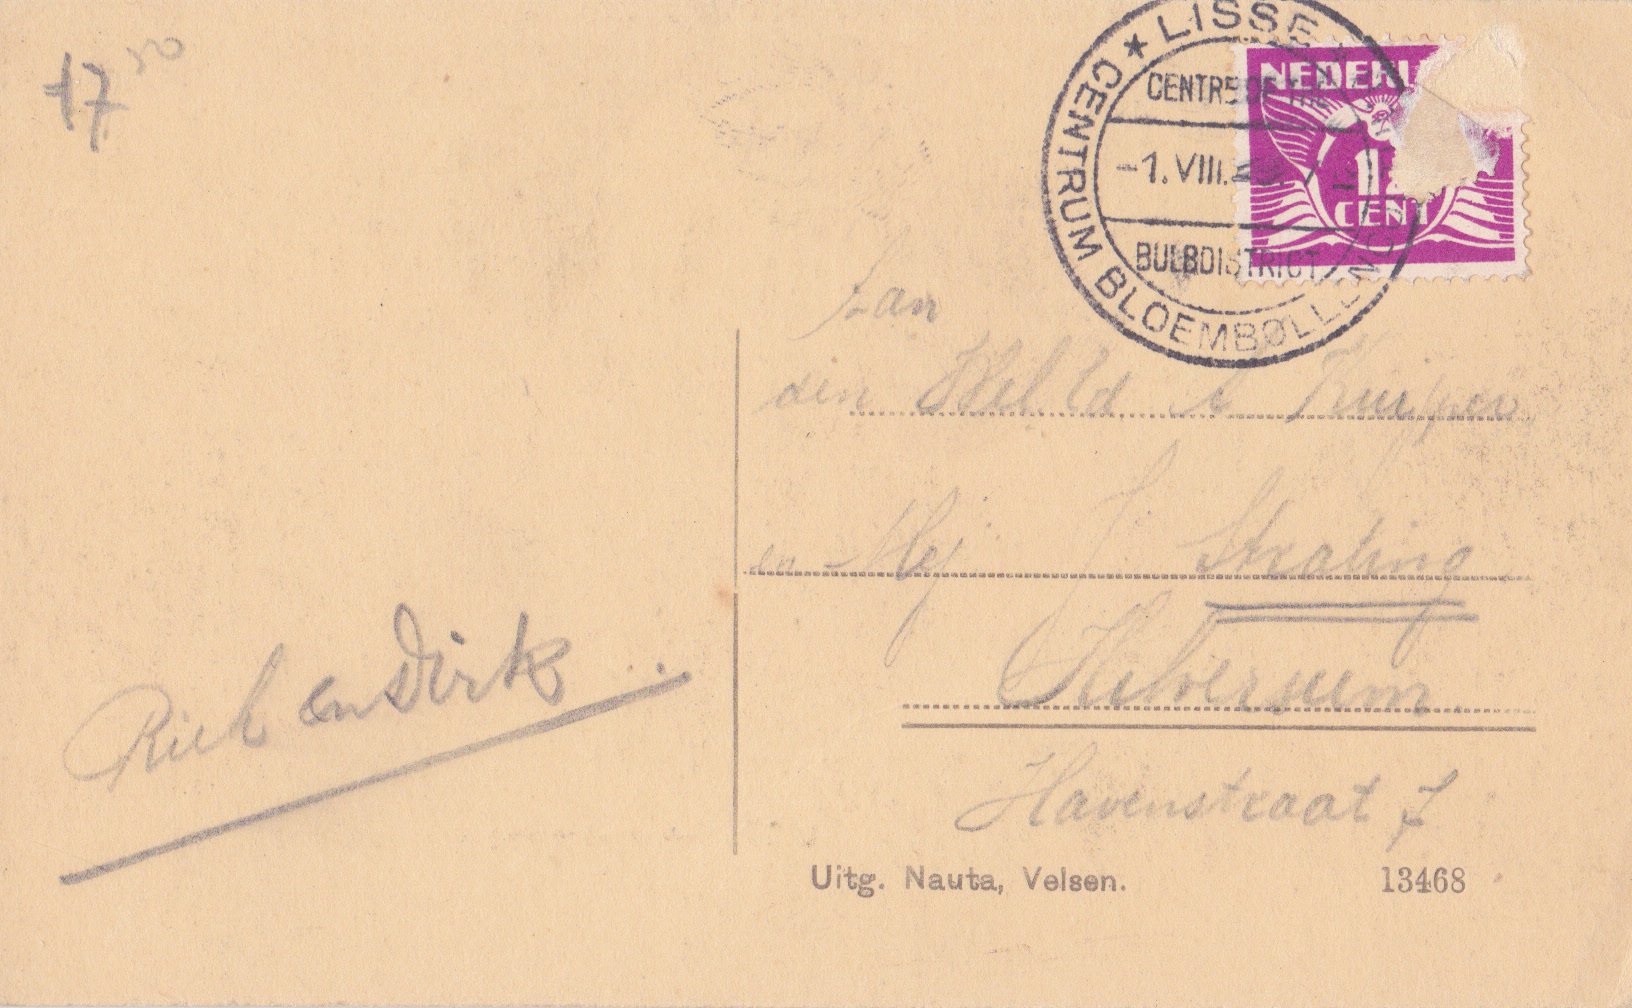 17 50
★ LISSE ★
CENTRUM BLOEMBOLLEN
CENTRE OF THE
-1.VIII.
BULBDISTRICT
NEDERL
1
CENT
Aan
den Wel Ed Kuiper
en Mej J. Strating
Hilversum.
Havenstraat 7
Riek en Dirk
Uitg. Nauta, Velsen.
13468